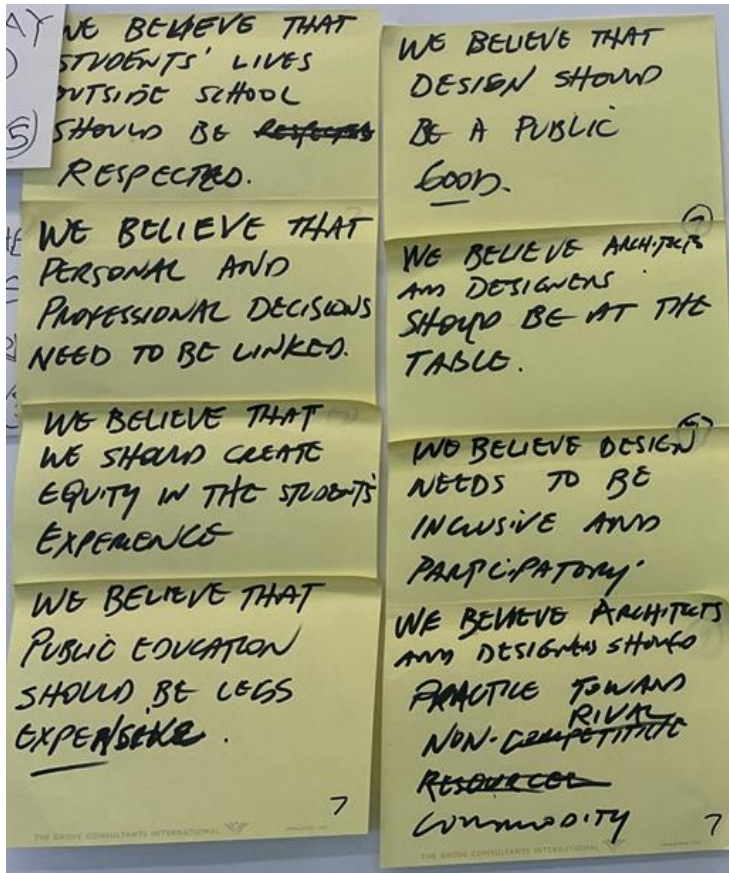 AY
5
WE BELIEVE THAT
STUDENTS' LIVES
OUTSIDE SCHOOL
SHOULD BE RESPECTED
RESPECTED.
WE BELIEVE THAT
PERSONAL AND
PROFESSIONAL DECISIONS
NEED TO BE LINKED.
WE BELIEVE THAT
WE SHOULD CREATE
EQUITY IN THE STUDENTS'
EXPERIENCE
WE BELIEVE THAT
PUBLIC EDUCATION
SHOULD BE LESS
EXPENSIVE.
7
THE GROVE CONSULTANTS INTERNATIONAL
WE BELIEVE THAT
DESIGN SHOULD
BE A PUBLIC
GOOD.
WE BELIEVE ARCHITECTS
AND DESIGNERS
SHOULD BE AT THE
TABLE.
WE BELIEVE DESIGN
NEEDS TO BE
INCLUSIVE AND
PARTICIPATORY.
WE BELIEVE ARCHITECTS
AND DESIGNERS SHOULD
PRACTICE TOWARD
RIVAL
NON-COMPETITIVE
RESOURCES
COMMODITY
7
THE GROVE CONSULTANTS INTERNATIONAL